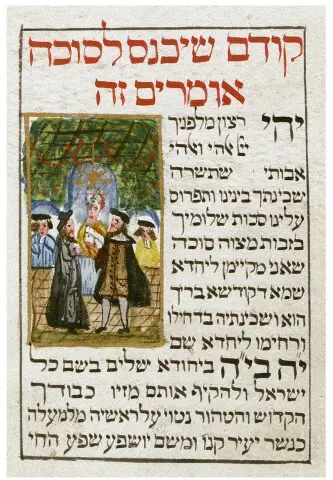 קודם שיכנס לסוכה
אומרים זה
יהי רצון מלפניך
אבותי שתשרה
שכינתך בינינו ותפרוס
עלינו סכות שלומיך
בזכות מצוה סוכה
שאני מקיימן ליחדא
שמא דקודשא בריך
הוא ושכינתיה בדחילו
ורחימו ליחדא שם
י״ה ב״ו״ה ביחודא שלים בשם כל
ישראל ולהקיף אותם מזיו כבודך
הקדוש והטהור נטוי על ראשיה מלמעלה
כנשר יעיר קנו ומשם יושפע שפע החי